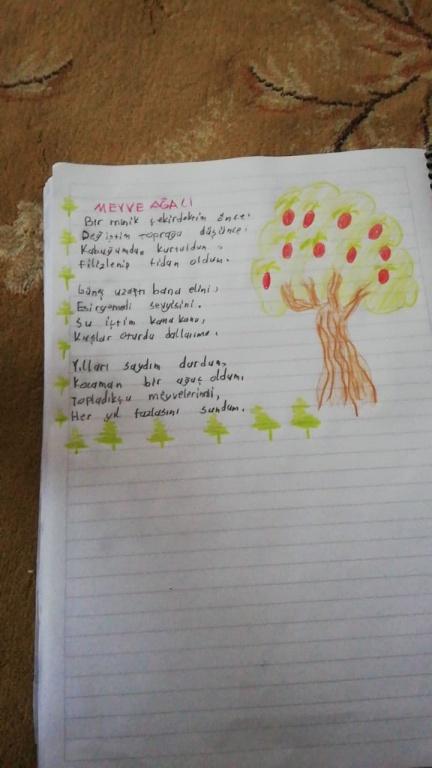 MEYVE AĞACI
Bir minik çekirdektim önce,
Değiştim toprağa düşünce,
Kabuğumdan kurtuldum,
Filizlenip fidan oldum.
Güneş uzattı bana elini,
Esirgemedi sevgisini.
Su içtim kana kana,
Kuşlar oturdu dallarıma.
Yılları saydım durdum,
Kocaman bir ağaç oldum,
Topladıkça meyvelerimi,
Her yıl fazlasını sundum.